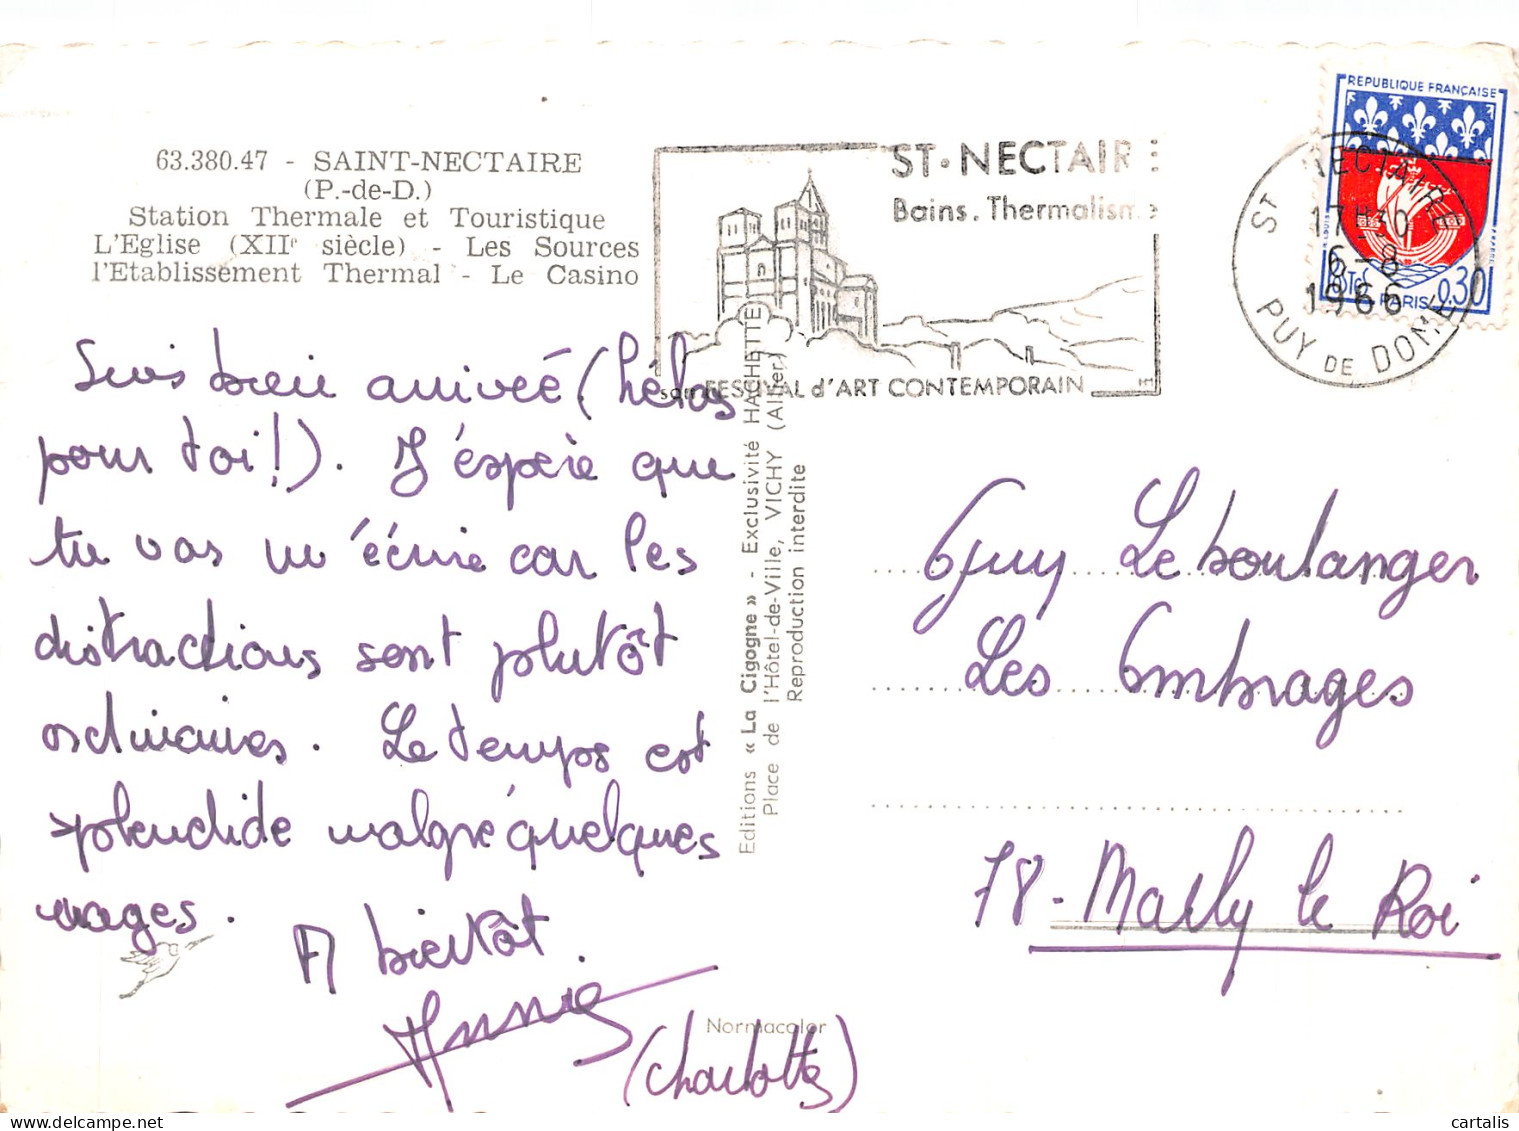 63.380.47 - SAINT-NECTAIRE
(P.-de-D.)
Station Thermale et Touristique
L'Eglise (XIIe siècle) - Les Sources
l'Etablissement Thermal - Le Casino
ST-NECTAIRE
Bains. Thermalisme
son FESTIVAL d'ART CONTEMPORAIN
REPUBLIQUE FRANÇAISE
PARIS 0,30
Postes
ST NECTAIRE
17H30
6-8
1966
PUY DE DOME
Suis bien arrivée (hélas
pour toi!). J'éspère que
tu vas m'écrire car les
distractions sont plutôt
ordinaires. Le temps est
splendide malgré quelques
nuages.
A bientôt.
Annie
(Charlotte)
Editions « La Cigogne » - Exclusivité HACHETTE
Place de l'Hôtel-de-Ville, VICHY (Allier)
Reproduction interdite
Normacolor
Guy Leboulanger
Les Ombrages
78 - Marly le Roi
cartalis